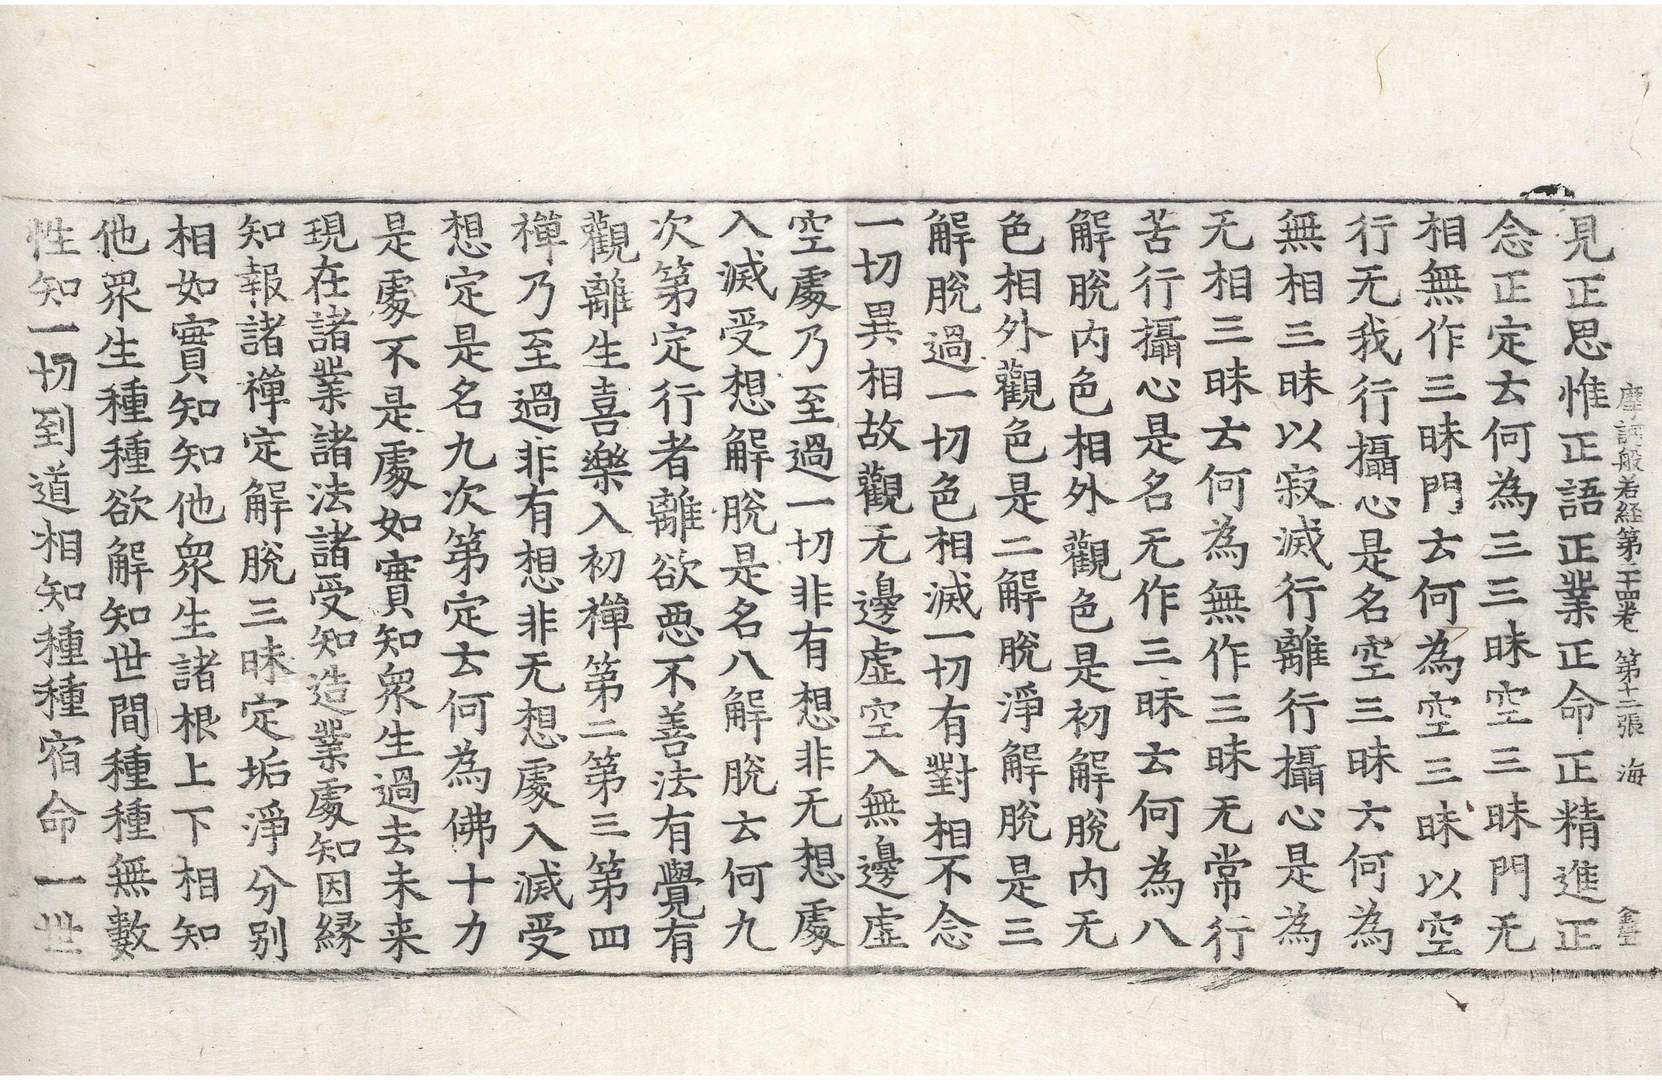 摩訶般若経第二十四卷　第十二張　海
見正思惟正語正業正命正精進正
念正定去何為三三昧空三昧門无
相無作三昧門去何為空三昧以空
行无我行攝心是名空三昧去何為
無相三昧以寂滅行離行攝心是為
无相三昧去何為無作三昧无常行
苦行攝心是名无作三昧去何為八
解脫內色相外觀色是初解脫內无
色相外觀色是二解脫淨解脫是三
解脫過一切色相滅一切有對相不念
一切異相故觀无邊虛空入無邊虛
空處乃至過一切非有想非无想處
入滅受想解脫是名八解脫去何九
次第定行者離欲惡不善法有覺有
觀離生喜樂入初禪第二第三第四
禪乃至過非有想非无想處入滅受
想定是名九次第定去何為佛十力
是處不是處如實知眾生過去未来
現在諸業諸法諸受知造業處知因縁
知報諸禪定解脫三昧定垢淨分別
相如實知知他眾生諸根上下相知
他眾生種種欲解知世間種種無數
性知一切到道相知種種宿命一世